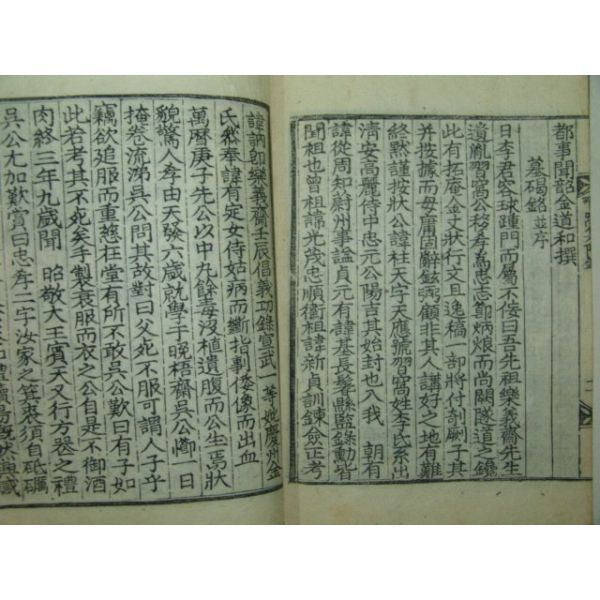 都事聞韶金道和撰
墓碣銘並序
日李君容球踵門而屬不佞曰吾先祖樂義齋先生
遺胤習窩公移孝爲忠忠節炳烺而尚闕隧道之鐫
此有拓庵金丈狀行文且逸稿一部將付剞劂子其
并按據而毋庸固辭鉉弼顧非其人講好之地有難
終默謹按狀公諱柱天字天應號習窩姓李氏系出
淸安高麗侍中忠元公陽吉其始封也入我 朝有
諱從周知蔚州事謚貞元有諱基長鬐縣監錄勳皆
聞祖也曾祖諱光茂忠順衛祖諱新貞訓鍊僉正考
諱訥卽樂義齋壬辰倡義功錄宣武一等妣慶州金
氏烋奉諱有定女侍姑病而斷指事倭像而出血
萬曆庚子先公以中丸餘毒沒植遺腹而公生焉狀
貌驚人孝由天發六歲就學于晚梧齋吳公 一日
掩卷流涕吳公問其故對曰父死不服可謂人子乎
竊欲追服而重慈在堂有所不敢吳公歎曰有子如
此若考其不死矣手製衰服而衣之公自是不御酒
肉終三年九歲聞 昭敬大王賓天又行方喪之禮
吳公尤加歎賞曰忠孝二字汝家之箕裘須自砥礪